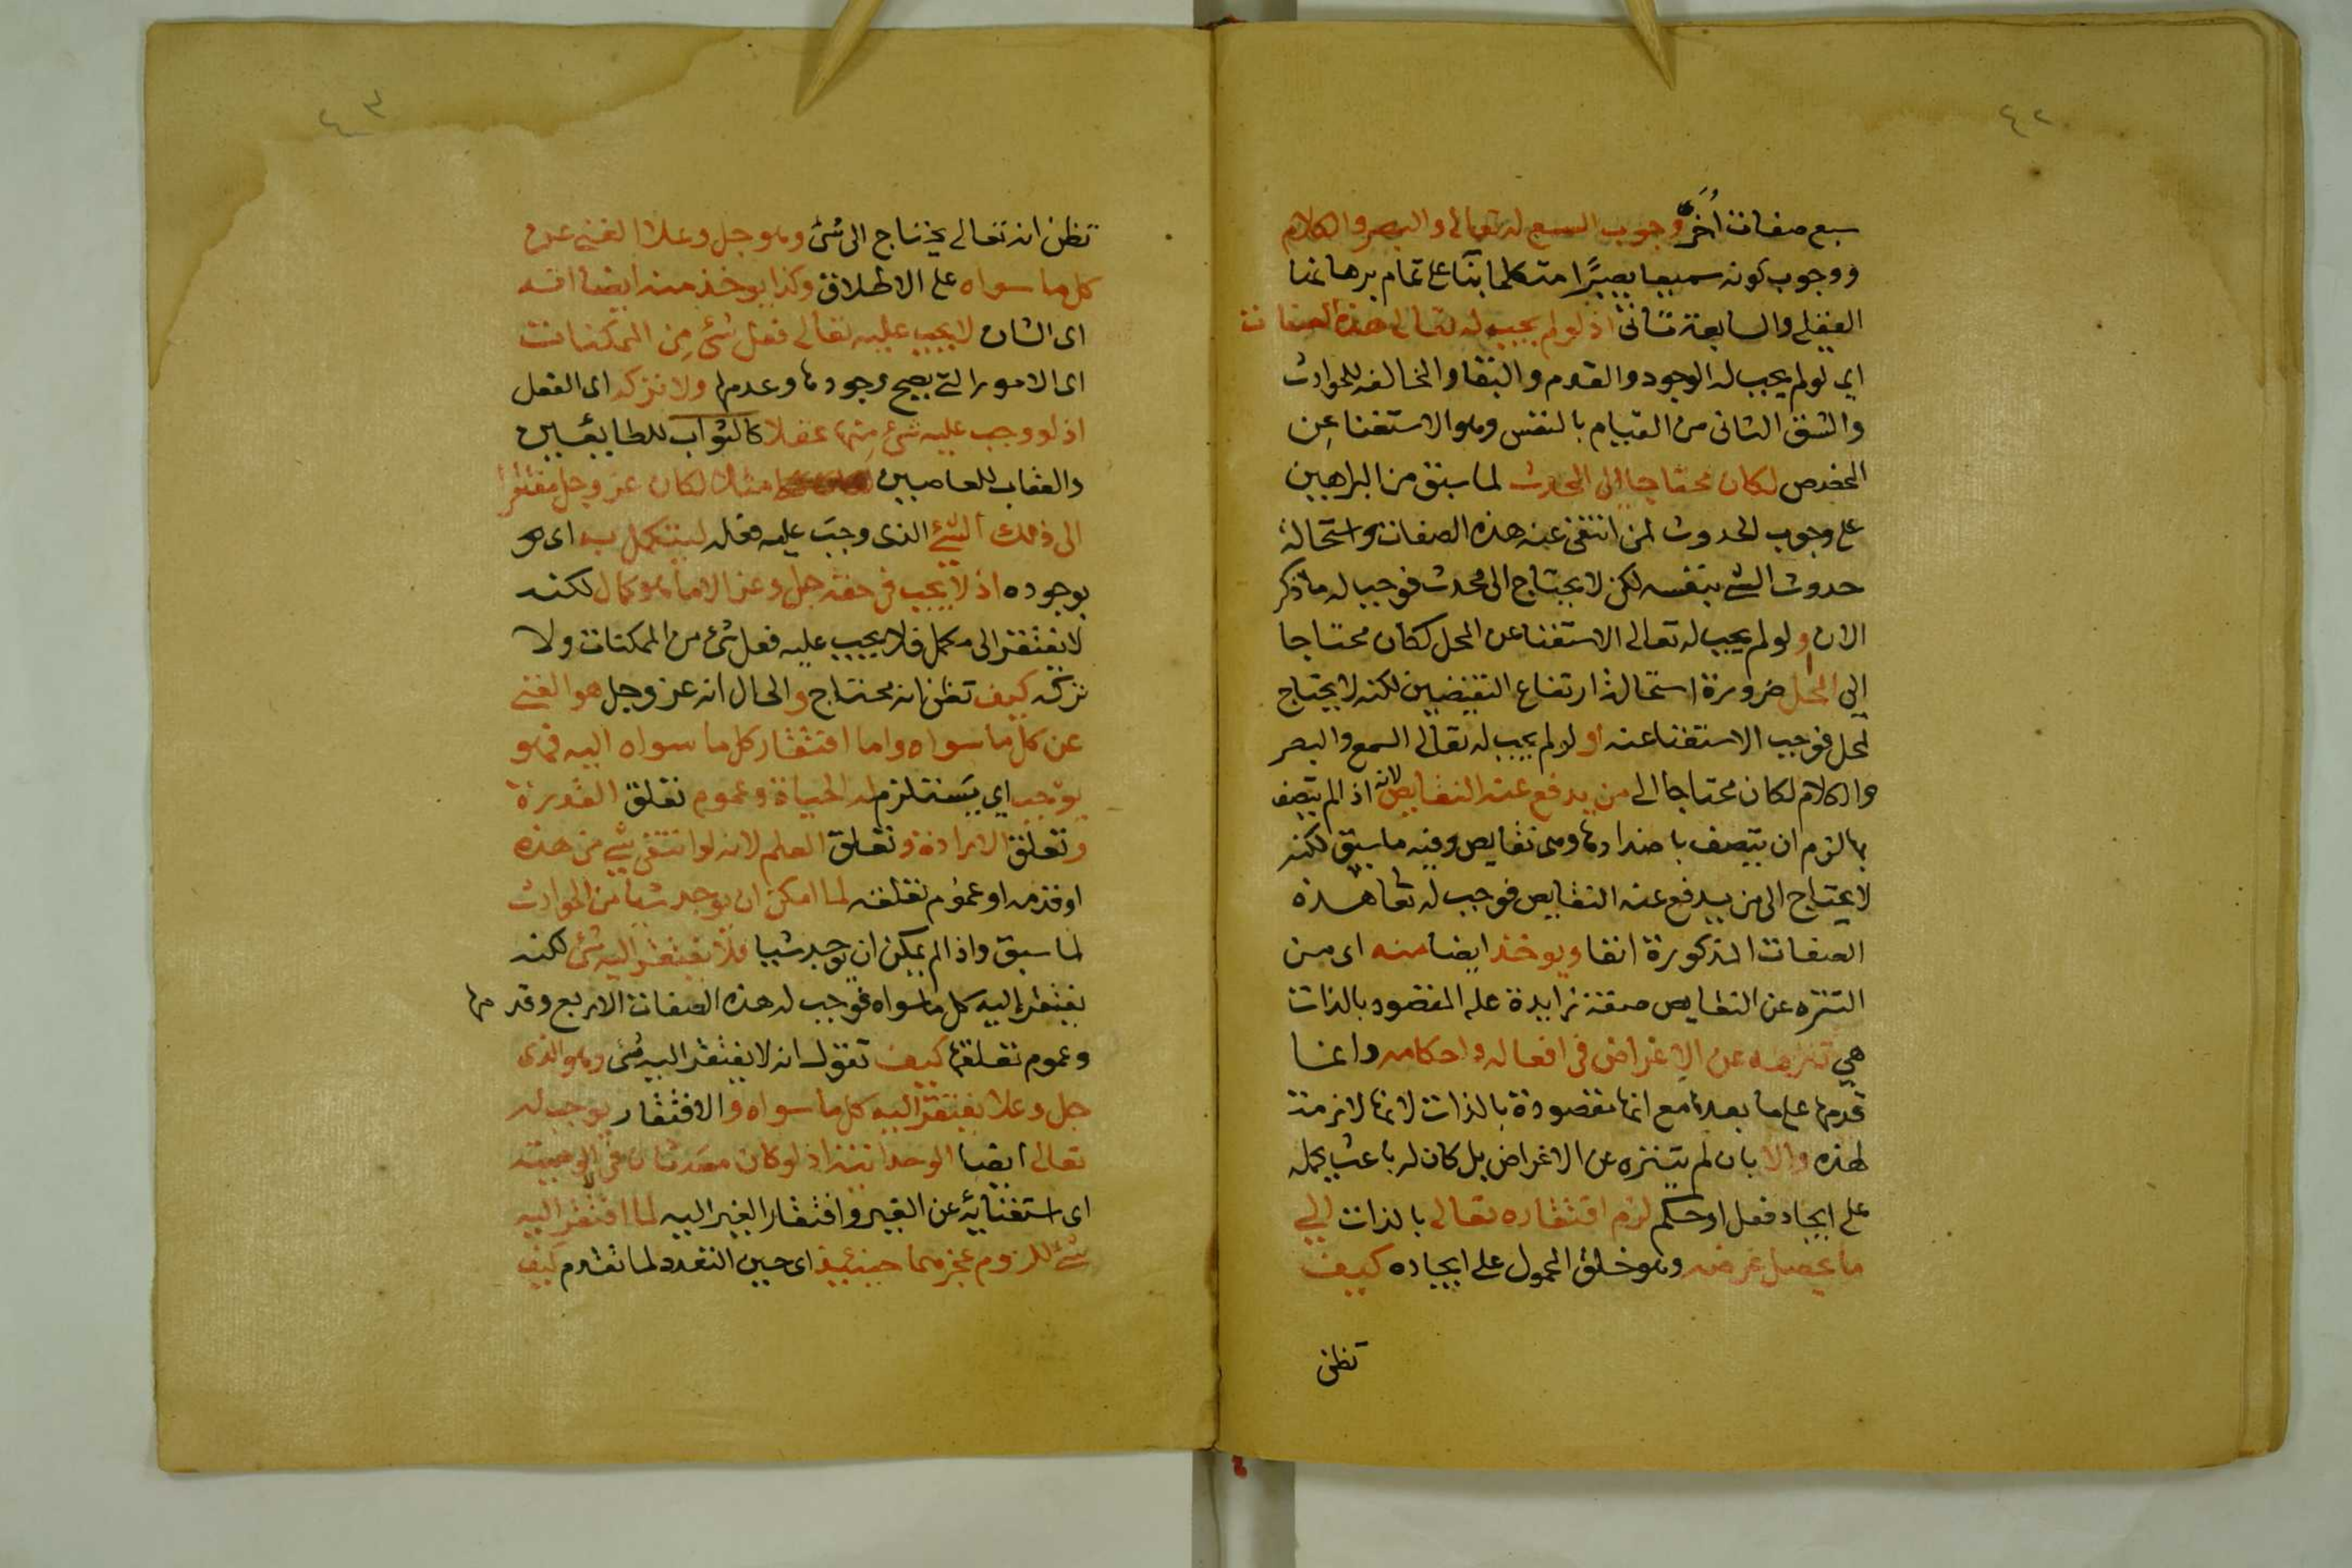 ٤٢
سبع صفات اُخَر وجوب السمع له تعالى والبصر والكلام
ووجوب كونه سميعا بصيرًا متكلما بنآ على تمام برهانها
العقلي والسابعة تاتى اذ لو لم يجب له تعالى هذه الصفات
اى لو لم يجب له الوجود والقدم والبقا والمخالفه للحوادث
والشق الثانى من القيام بالنفس وهو الاستغنا عِن
المخصص لكان محتاجا الى المحدث لما سبق من البراهين
على وجوب الحدوث لمن انتفى عنه هذه الصفات واستحالة
حدوث الشئ بنفسه لكن لا يحتاج الى محدث فوجب له ما ذكر
الان ولو لم يجب له تعالى الاستغنا عن المحل لكان محتاجا
الى المحل ضرورة استحالة ارتفاع النقيضين لكنه لا يحتاج
لمحل فوجب الاستغنا عنه او لو لم يجب له تعالى السمع والبصر
والكلام لكان محتاجا الى من يدفع عنه النقايص لانه اذا لم يتصف
بها لزم ان يتصف باضدادها وهى نقايص وفيه ما سبق لكنه
لا يحتاج الى من يدفع عنه النقايص فوجب له تعا هذه
الصفات المذكورة انفا ويوخذ ايضا منه اى من
التنزه عن النقايص صفة زايدة على المقصود بالذات
هي تنزهه عن الاغراض فى افعاله واحكامه وانما
قدمها على ما بعدها مع انها مقصودة بالذات لانها لازمة
لهذه والا بان لم يتنزه عن الاغراض بل كان له باعث يحمله
على ايجاد فعل او حكم لزم افتقاره تعالى بالذات الي
ما يحصل غرضه وهو خلق المحمول على ايجاده كيف
تظن
٤٣
تظن انه تعالى يحتاج الى شئ وهو جل وعلا الغنى عن
كل ما سواه على الاطلاق وكذا يوخذ منه ايضا انه
اى الشان لا يجب عليه تعالى فعل شئ مِن الممكنات
اى الامور التى يصح وجودها وعدمها ولا تركه اى الفعل
اذ لو وجب عليه شئ مِنها عقلا كالثواب للطايعين
والعقاب للعاصيين مثلا لكان عز وجل مفتقرا
الى ذلك الشئ الذى وجب عليه فعله ليتكمل به اى هو
بوجوده اذ لا يجب فى حقه جل وعز الا ما هو كمال لكنه
لا يفتقر الى مكمل فلا يجب عليه فعل شئ من الممكنات ولا
تركه كيف تظن انه محتاج والحال انه عز وجل هو الغنى
عن كل ما سواه واما افتقار كل ما سواه اليه فهو
يوجب اي يَستلزم له الحياة وعموم تعلق القدرة
وتعلق الارادة وتعلق العلم لانه لو انتفى شئ من هذه
او قدمه او عموم تعلقه لما امكن ان يوجد شيا من الحوادث
لما سبق واذا لم يمكن ان يوجد شيا فلا يفتقر اليه شئ لكنه
يفتقر اليه كل ما سواه فوجب له هذه الصفات الاربع وقدمها
وعموم تعلقها كيف تقول انه لا يفتقر اليه شئ وهو الذى
جل وعلا يفتقر اليه كل ما سواه والافتقار يوجب له
تعالى ايضا الوحدانية اذ لو كان معه ثان فى الوهيته
اى استغنايه عن الغير وافتقار الغير اليه لما افتقر اليه
شئ للزوم عجزهما حينئيذ اى حين التعدد لما تقدم كيف